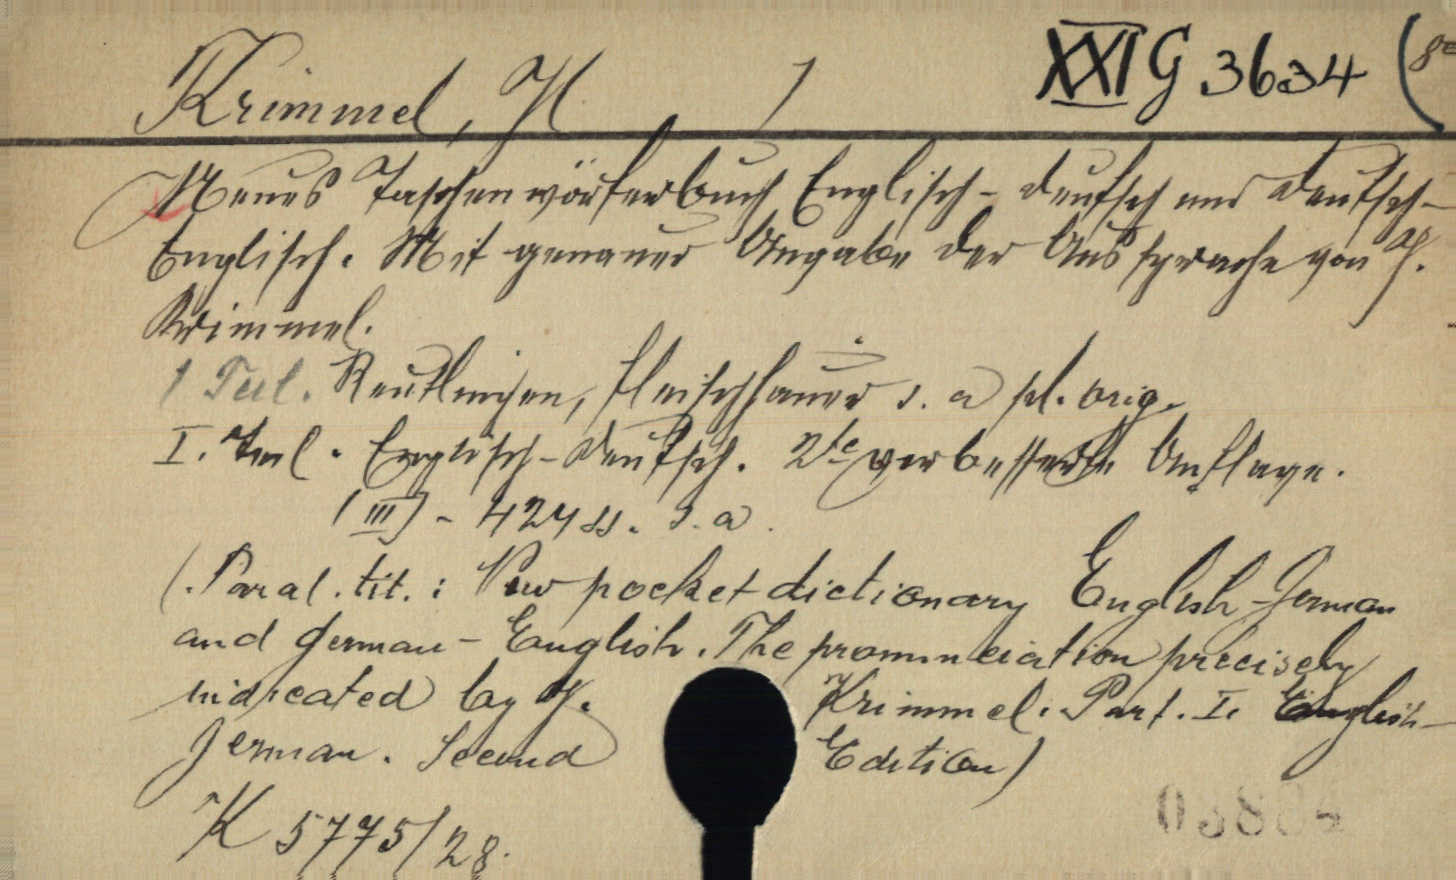 Krimmel, H 1 XXI G 3634 (8°
Neues Taschenwörterbuch Englisch-deutsch und deutsch-
Englisch. Mit genauer Angabe der Aussprache von H.
Krimmel.
1 Teil. Reutlingen, Fleischhauer s. a pl. orig.
I. Teil. Englisch-deutsch. 2te verbesserte Auflage.
(III) - 424 ss. s. a.
(Paral. tit.: New pocket dictionary English-German
and German-English. The pronunciation precisely
indicated by H. Krimmel. Part. I. English-
German. Second Edition)
K 5775/28.